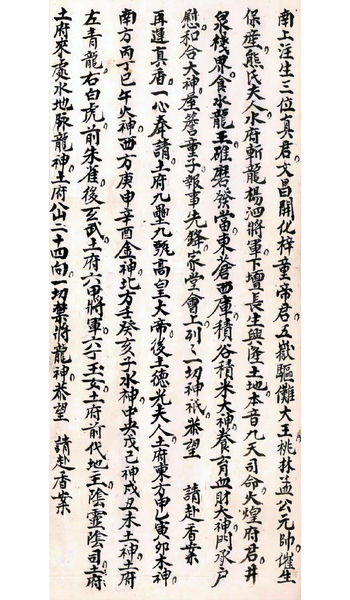 南上注生三位真君文昌開化梓童帝君五嶽驅儺大王桃林孟公元帥催生
保產熊氏夫人水府斬龍楊泗將軍下壇長生興隆土地本音九天司命火煌府君井
泉棧界食水龍王碓磨發當東蒼西庫積谷積米大神養育血財大神門承户
慰和合大神屋簷童子報事先鋒家堂會上列々一切神祇恭望　請赴香案
再運真香一心奉請土府九壘九甄高皇大帝後土德光夫人土府東方甲乙寅卯木神
南方丙丁巳午火神西方庚申辛酉金神北方壬癸亥子水神中央戊己神戌丑未土神土府
左青龍右白虎前朱雀後玄武土府六甲將軍六丁玉女土府前代地主陰靈陰司土府
土府來處水地脉龍神土府八山二十四向一切禁將龍神恭望　請赴香案